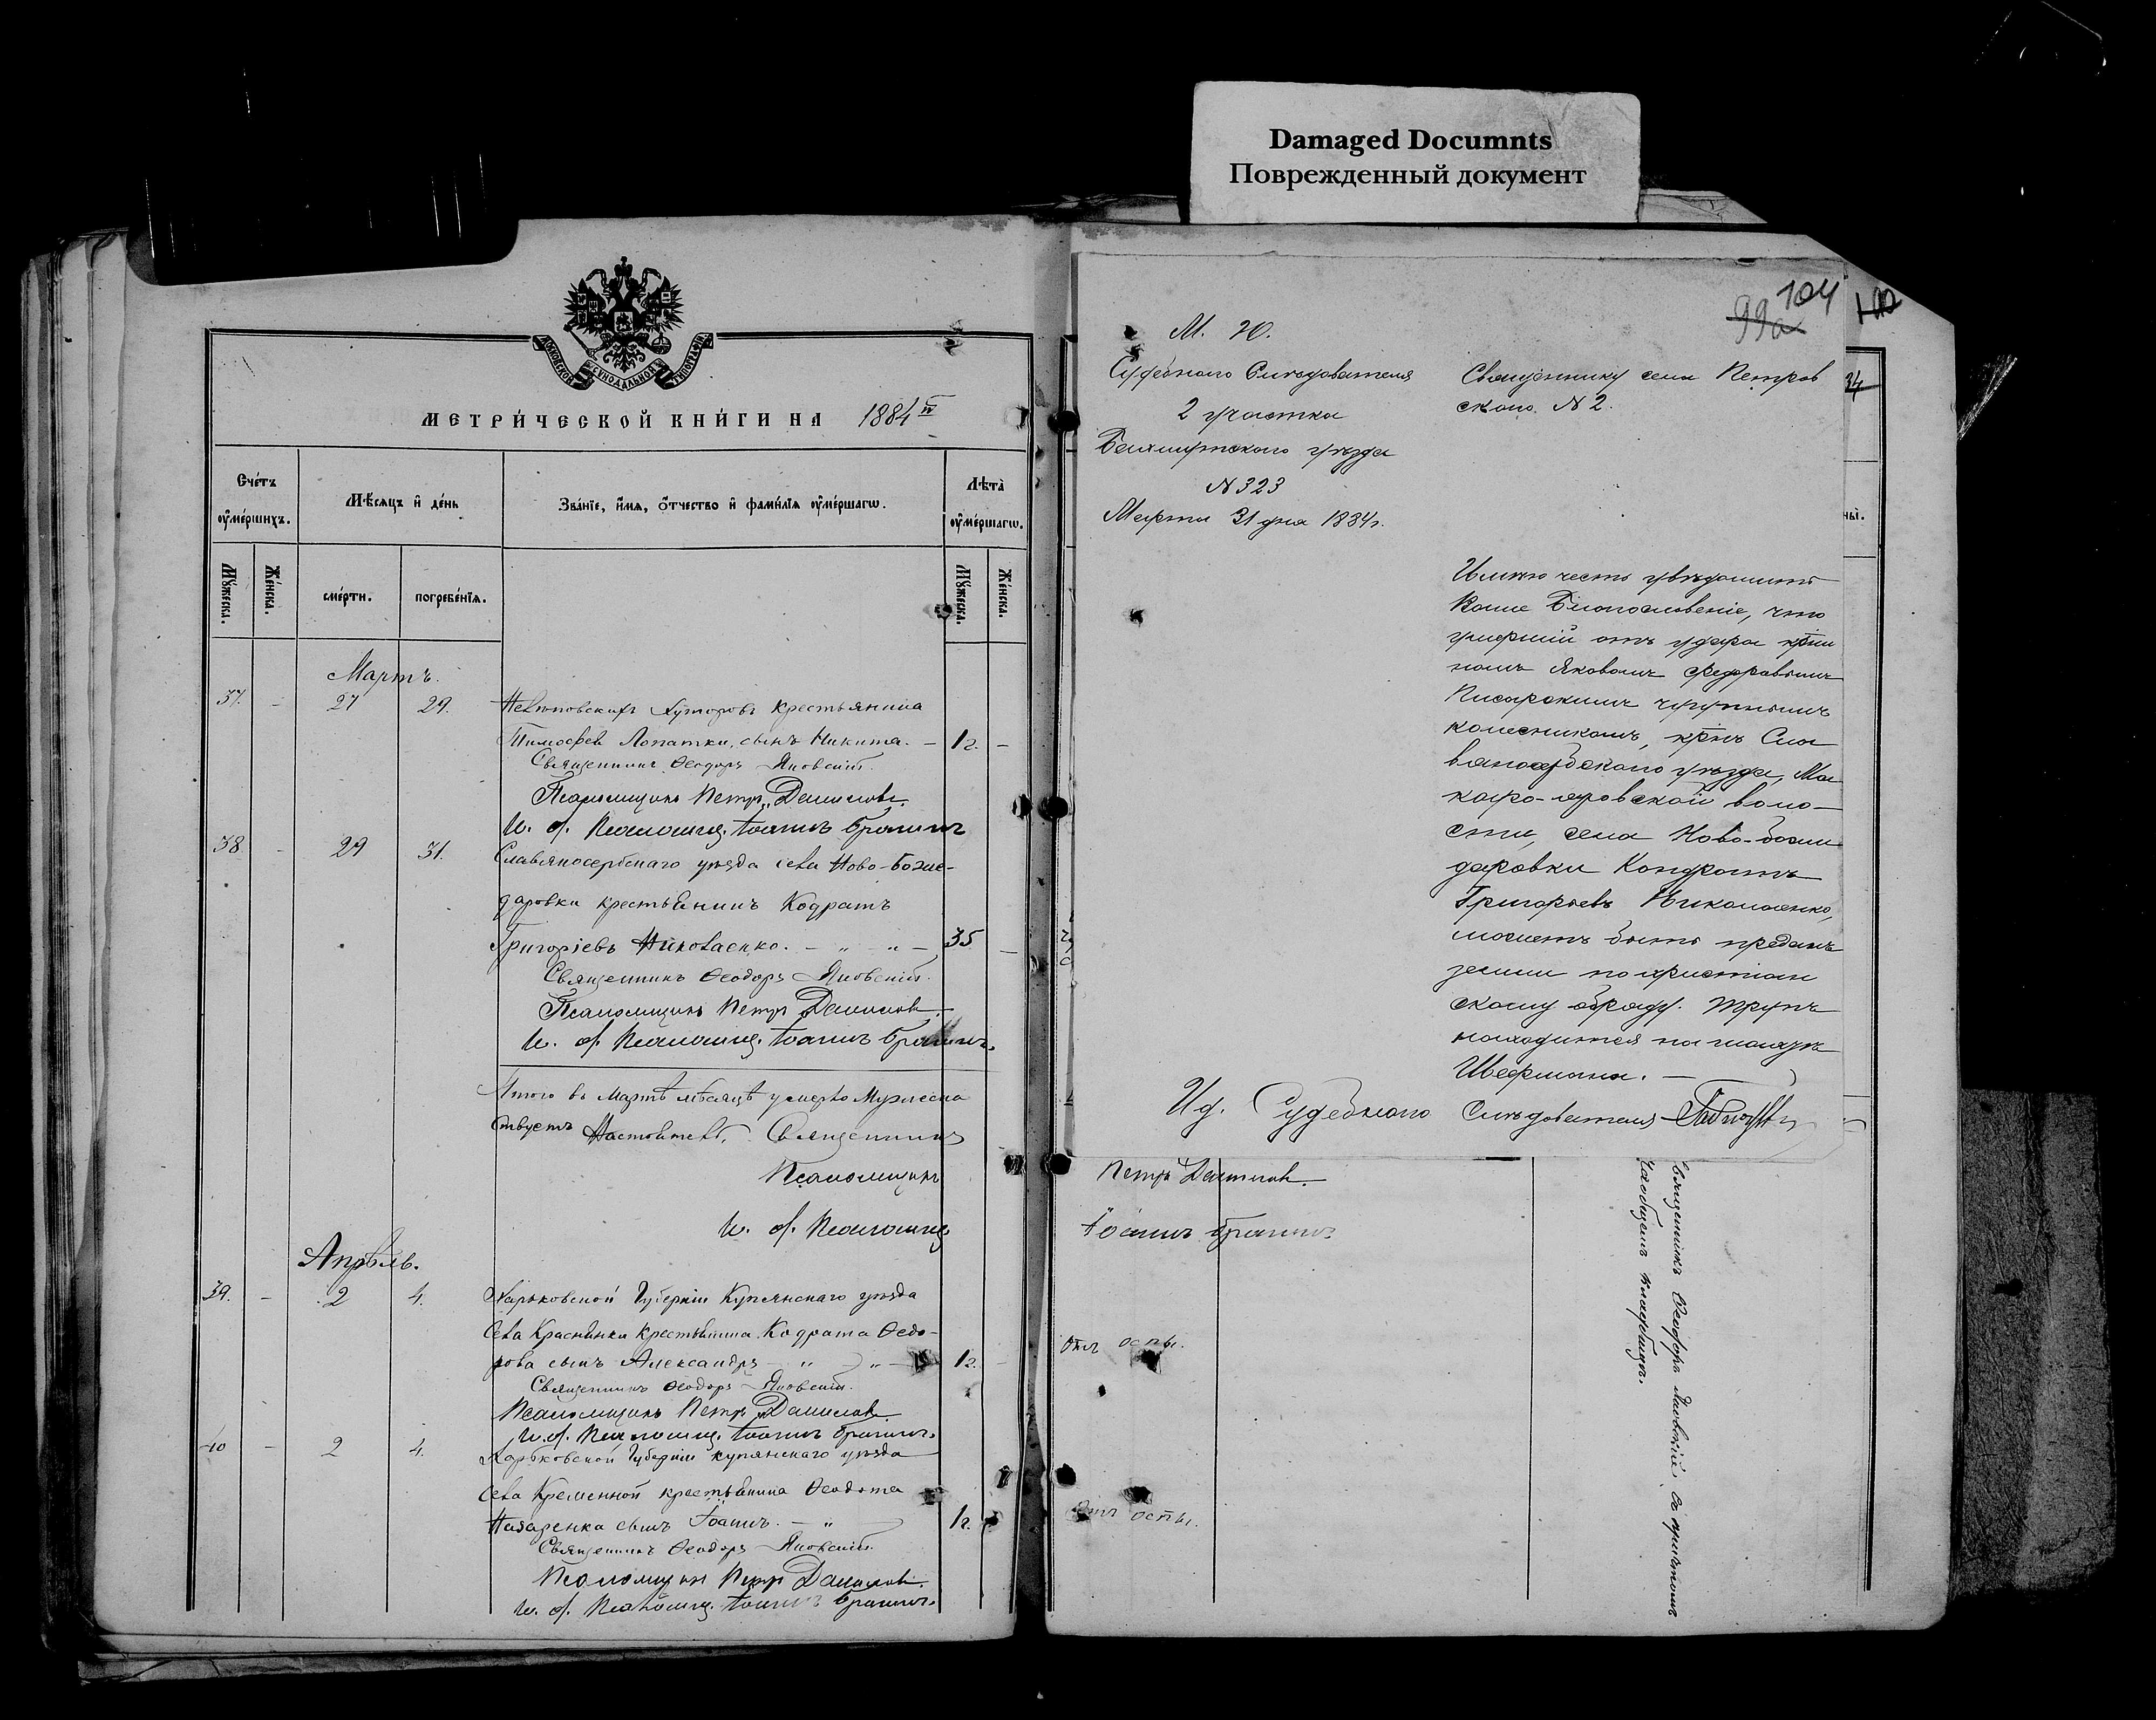 Damaged Documnts
Поврежденный документ
МОСКОВСКОЙ СѴНОДАЛЬНОЙ ТИПОГРАФІИ
МЕТРИЧЕСКОЙ КНИГИ НА 1884
Счетъ умершихъ.
Мѣсяцъ и день
Званіе, имя, отчество и фамилія умершагѡ.
Лѣта умершагѡ.
Мужеска.
Женска.
смерти.
погребенія.
Мужеска.
Женска.
Мартъ.
37. - 27 29. хуторовъ крестьянина
Тимофея Лопатки, сынъ Никита. - 1 г. -
Священникъ Ѳеодоръ Яновскій.
Псаломщикъ Петръ Данилов.
И. д. Псаломщ. Іоаннъ
38. - 29 31. Славяносербскаго уѣзда села Ново-Боже-
даровки крестьянинъ Кодратъ
Григоріевъ Николаенко. - „ - „ - 35 -
Священникъ Ѳеодоръ Яновскій.
Псаломщикъ Петръ Данилов.
И. д. Псаломщ. Іоаннъ
Итого въ Мартѣ мѣсяцѣ умерло Мужеска
Настоятель, Священникъ
Псаломщикъ
И. д. Псаломщ.
Апрѣль.
39. - 2 4. Харьковской Губерніи Купянскаго уѣзда
села Краснянки крестьянина Кодрата Ѳедо-
рова сынъ Александръ - „ - „ - 1 г. -
Священникъ Ѳеодоръ Яновскій.
Псаломщикъ Петръ Данилов.
И. д. Псаломщ. Іоаннъ
40 - 2 4. Харьковской Губерніи Купянскаго уѣзда
села Кременной крестьянина Ѳеодота
Назаренка сынъ Іоаннъ. - „ 1 г.
Священникъ Ѳеодоръ Яновскій.
Псаломщик Петр Данилов.
И. д. Псаломщ. Іоаннъ
104
99а
100
М. Ю.
Судебнаго Слѣдователя
2 участка
Бахмутскаго уѣзда
N 323
Марта 31 дня 1884 г.
Священнику села Петров
скаго N 2.
Имѣю честь увѣдомить
Ваше Благословеніе, что
умершій отъ удара крти
номъ Яковомъ Федоровымъ
Писарскимъ чугуннымъ
колесникомъ, крнъ Сла
вяносербскаго уѣзда, Ма
каро-яровской воло-
сти, села Ново-боже
даровки Кондратъ
Григорьевъ Николаенко,
можетъ быть преданъ
земли по христіан
скому обряду. Трупъ
находится на шахтѣ
Шефмана. -
Ид. Судебнаго Слѣдователя
34
ны.
Петръ Данилов.
Іоаннъ
Отъ оспы.
Отъ оспы.
Священникъ Ѳеодоръ Яновскій, съ причтомъ
на общемъ кладбищѣ.